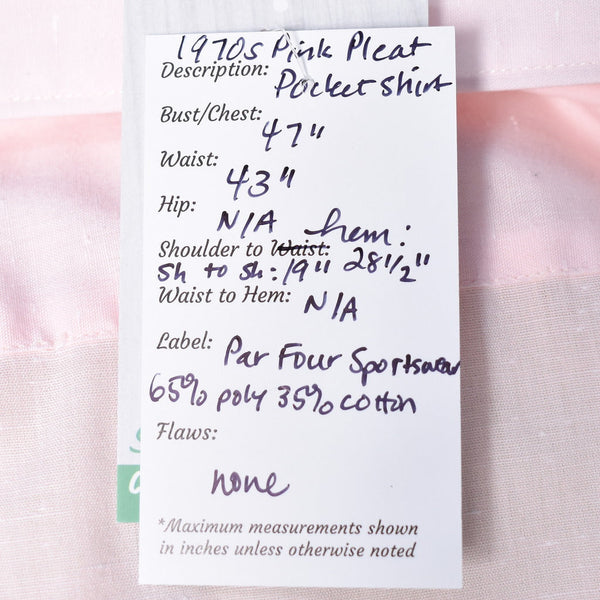 1970s Pink Pleat
Description: Pocket shirt
Bust/Chest: 47"
Waist: 43"
Hip: N/A
Shoulder to Waist: hem: 28 1/2"
Sh to Sh: 19"
Waist to Hem: N/A
Label: Par Four Sportswear
65% poly 35% cotton
Flaws:
none
*Maximum measurements shown
in inches unless otherwise noted